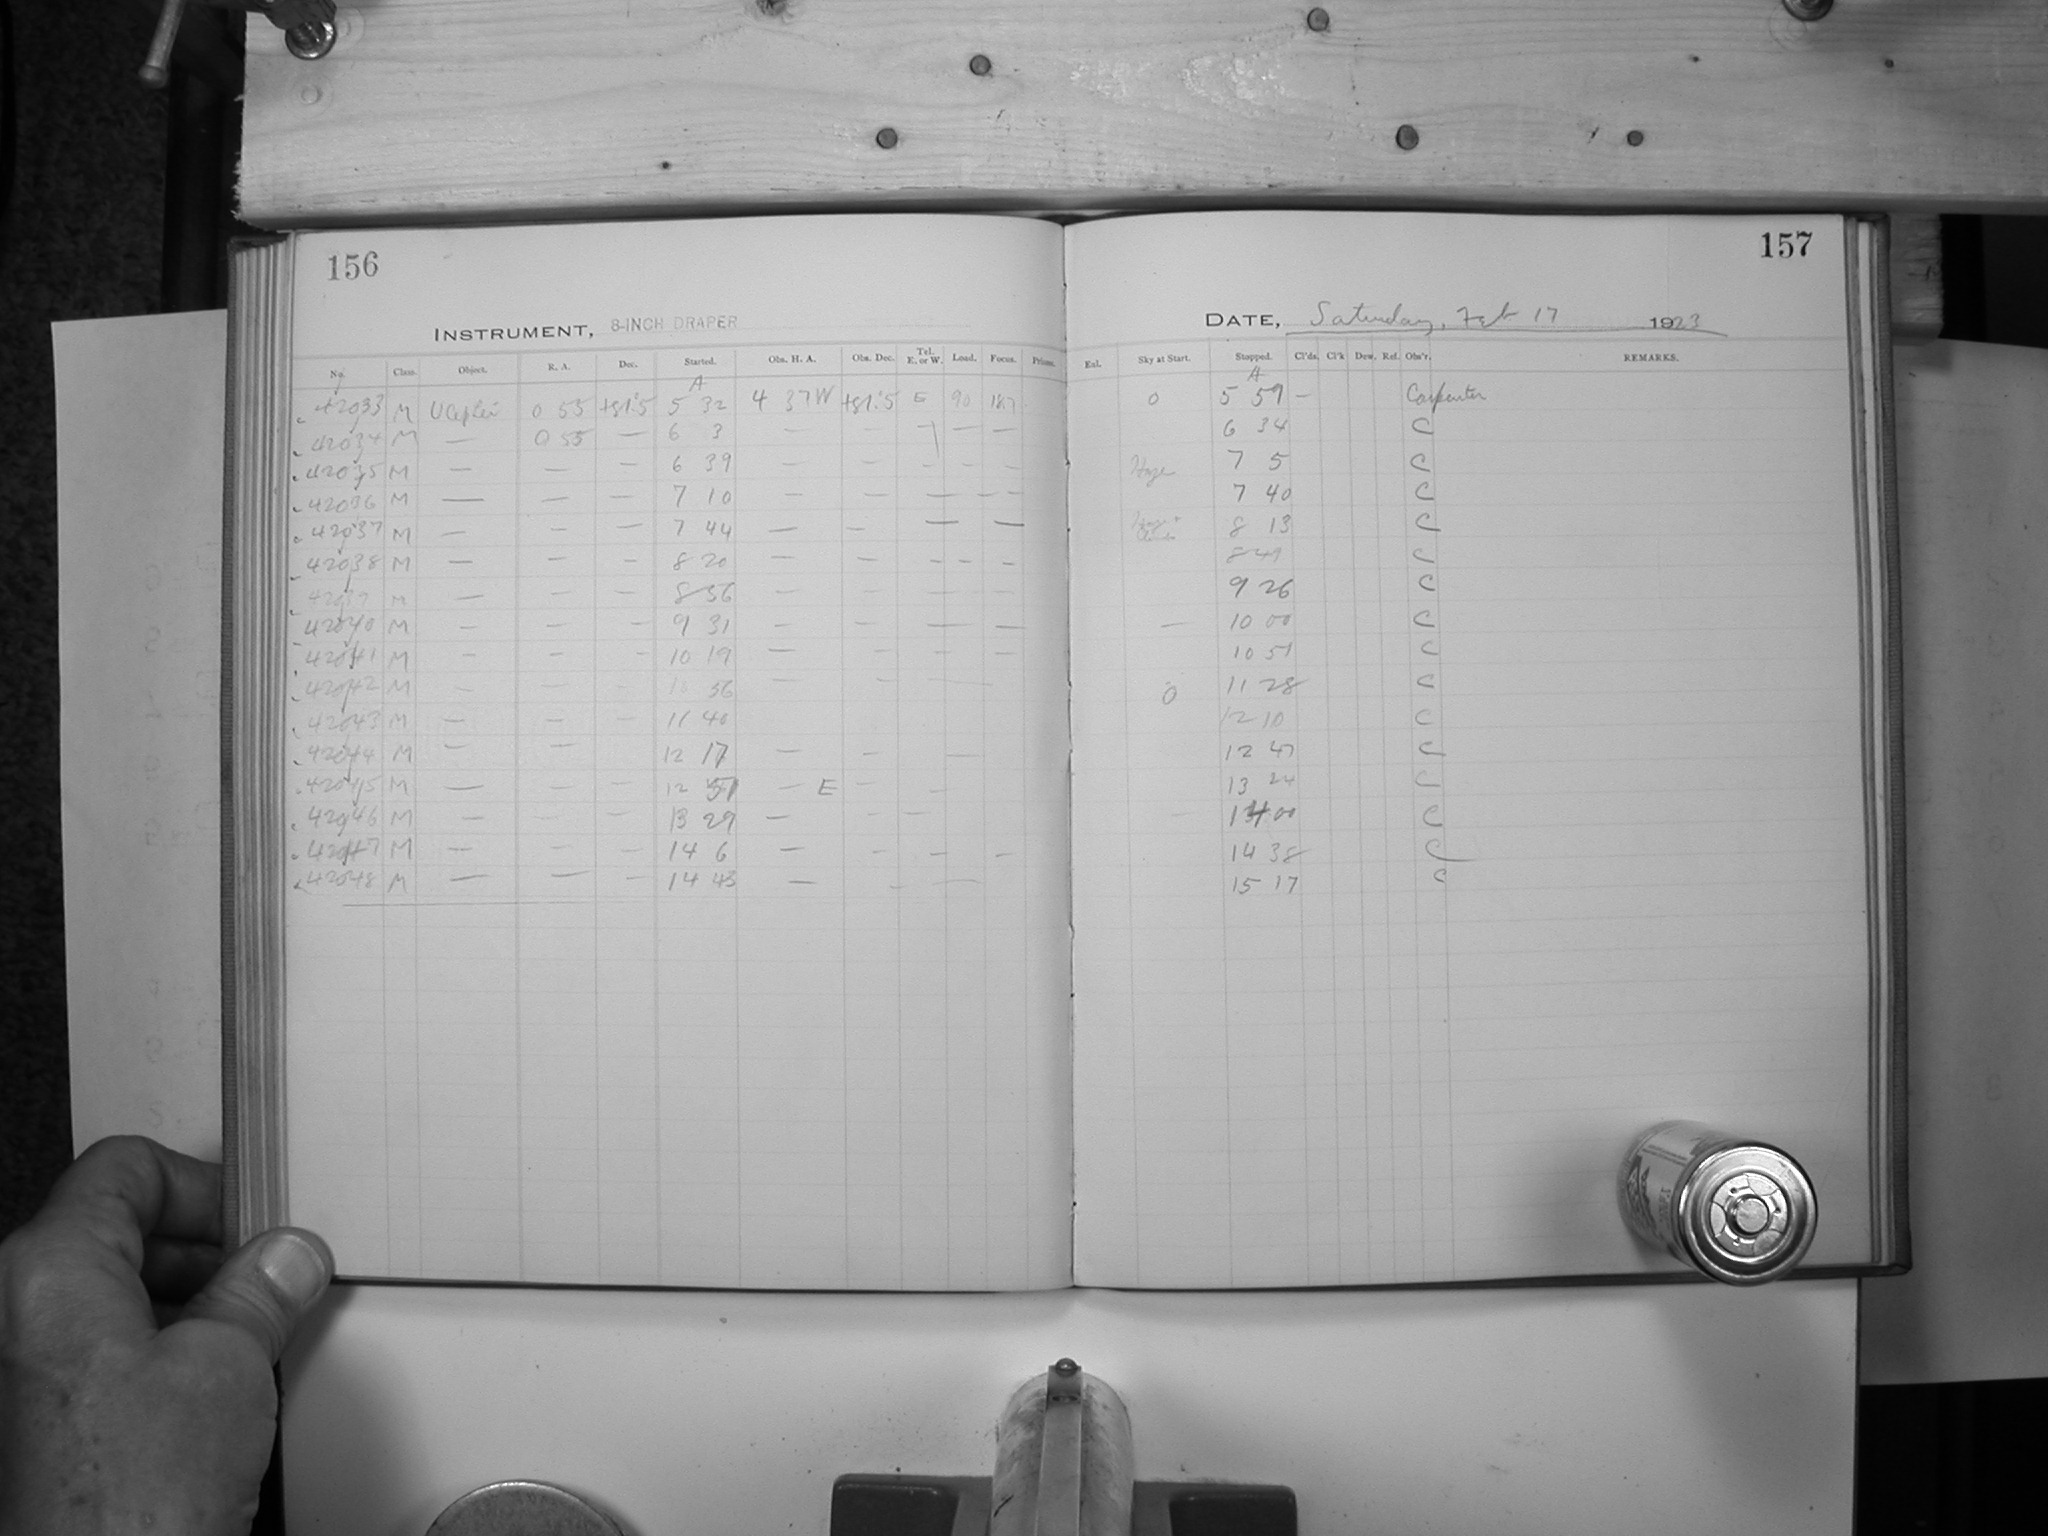 156
157
INSTRUMENT, 8-INCH DRAPER
DATE, Saturday, Feb 17 1923
No. Class. Object. R. A. Dec. Started. Obs. H. A. Obs. Dec. Tel. E. or W. Load. Focus. Prisms. Exl. Sky at Start. Stopped. Cl'ds. Cl'k Dew. Ref. Obs'r. REMARKS.
A A
42033 M U Cephei 0 53 +81.5 5 32 4 37 W +81.5 E 90 18.7 0 5 59 — Carpenter
42034 M — 0 53 — 6 3 — — — — 6 34 C
42035 M — — — 6 39 — — — — — Haze 7 5 C
42036 M — — — 7 10 — — — — — 7 40 C
42037 M — — — 7 44 — — — — 8 13 C
42038 M — — — 8 20 — — — — — 8 49 C
42039 M — — — 8 56 — — — — — 9 26 C
42040 M — — — 9 31 — — — — — 10 00 C
42041 M — — — 10 19 — — — — 10 51 C
42042 M — — — 56 — — — 0 11 28 C
42043 M — — — 11 40 12 10 C
42044 M — — 12 17 — — — 12 47 C
42045 M — — — 12 51 — E — — 13 24 C
42046 M — — — 13 29 — — — — 14 00 C
42047 M — — — 14 6 — — — — 14 38 C
42048 M — — — 14 43 — — — 15 17 C